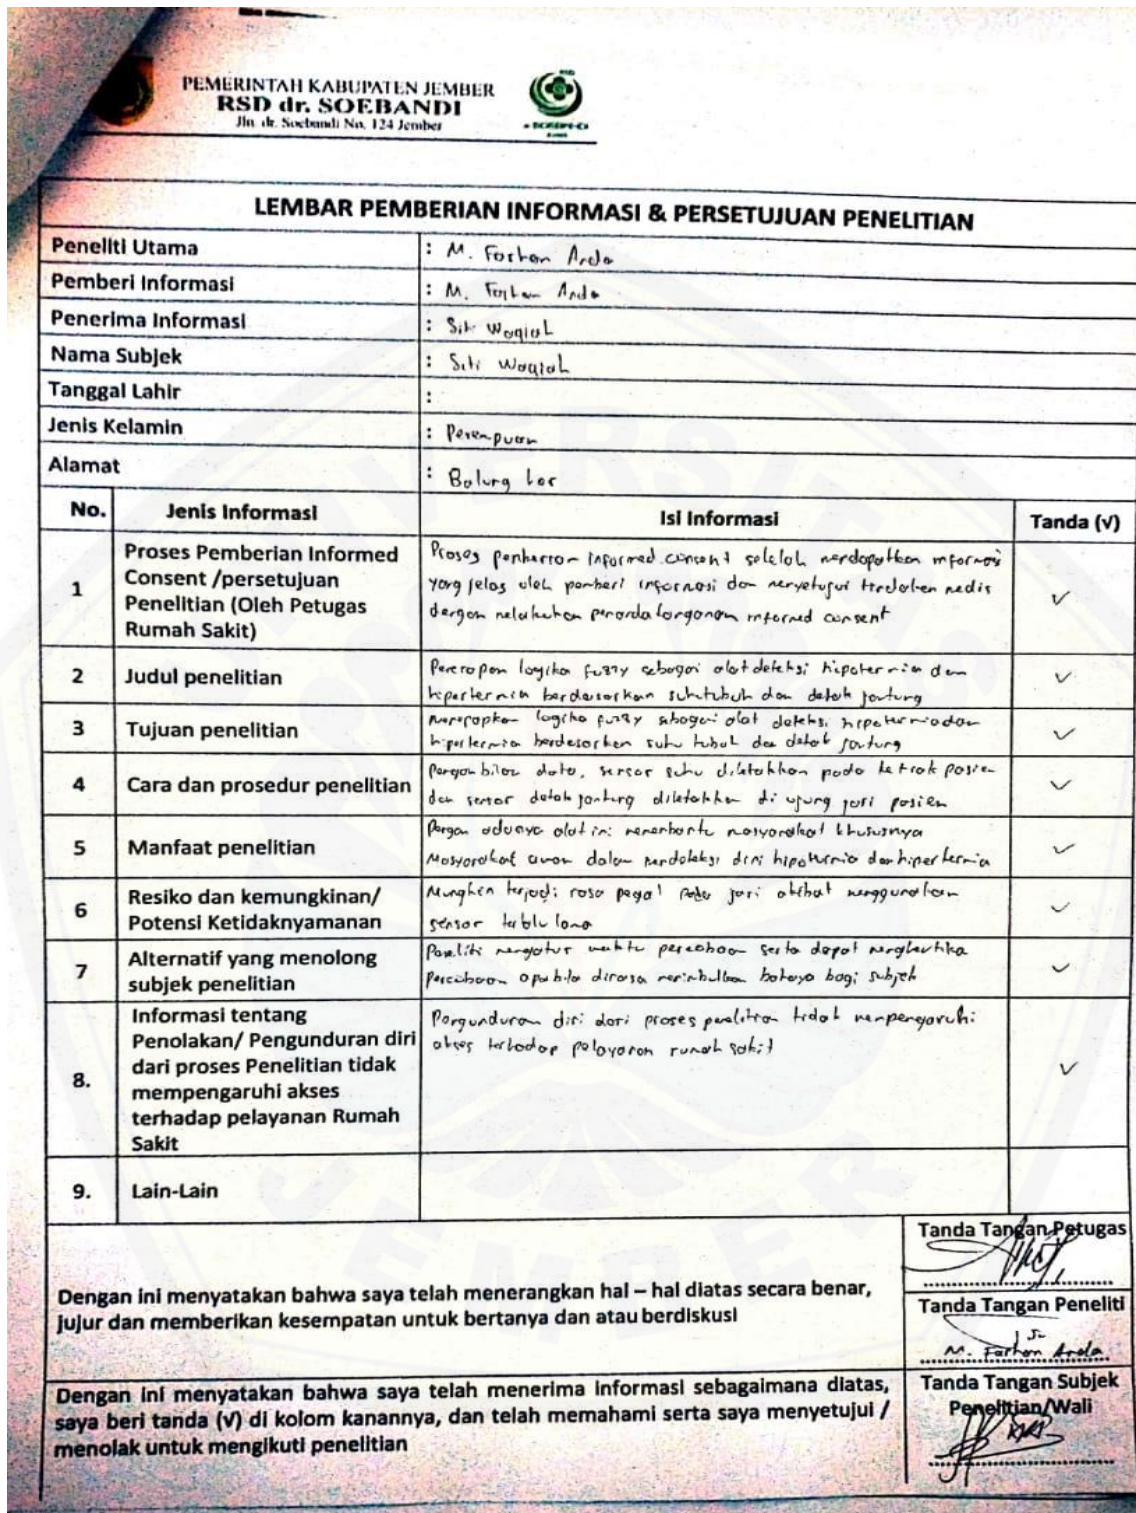 PEMERINTAH KABUPATEN JEMBER
RSD dr. SOEBANDI
Jln. dr. Soebandi No. 124 Jember
LEMBAR PEMBERIAN INFORMASI & PERSETUJUAN PENELITIAN
Peneliti Utama : M. Farhan Arda
Pemberi Informasi : M. Farhan Arda
Penerima Informasi : Siti Waqiah
Nama Subjek : Siti Waqiah
Tanggal Lahir :
Jenis Kelamin : Perempuan
Alamat : Balung Lor
No. Jenis Informasi Isi Informasi Tanda (√)
1 Proses Pemberian Informed Consent /persetujuan Penelitian (Oleh Petugas Rumah Sakit)
Proses pemberian informed consent setelah mendapatkan informasi
yang jelas oleh pemberi informasi dan menyetujui tindakan medis
dengan melakukan penandatanganan informed consent √
2 Judul penelitian
Penerapan logika fuzzy sebagai alat deteksi hipotermia dan
hipertermia berdasarkan suhu tubuh dan detak jantung √
3 Tujuan penelitian
Menerapkan logika fuzzy sebagai alat deteksi hipotermia dan
hipertermia berdasarkan suhu tubuh dan detak jantung √
4 Cara dan prosedur penelitian
Pengambilan data, sensor suhu diletakkan pada ketiak pasien
dan sensor detak jantung diletakkan di ujung jari pasien √
5 Manfaat penelitian
Dengan adanya alat ini membantu masyarakat khususnya
Masyarakat awam dalam mendeteksi dini hipotermia dan hipertermia √
6 Resiko dan kemungkinan/ Potensi Ketidaknyamanan
Mungkin terjadi rasa pegal pada jari akibat menggunakan
sensor terlalu lama √
7 Alternatif yang menolong subjek penelitian
Peneliti mengatur waktu percobaan serta dapat menghentikan
percobaan apabila dirasa menimbulkan bahaya bagi subjek √
8. Informasi tentang Penolakan/ Pengunduran diri dari proses Penelitian tidak mempengaruhi akses terhadap pelayanan Rumah Sakit
Pengunduran diri dari proses penelitian tidak mempengaruhi
akses terhadap pelayanan rumah sakit √
9. Lain-Lain
Dengan ini menyatakan bahwa saya telah menerangkan hal – hal diatas secara benar,
jujur dan memberikan kesempatan untuk bertanya dan atau berdiskusi
Tanda Tangan Petugas
Tanda Tangan Peneliti
M. Farhan Arda
Dengan ini menyatakan bahwa saya telah menerima informasi sebagaimana diatas,
saya beri tanda (√) di kolom kanannya, dan telah memahami serta saya menyetujui /
menolak untuk mengikuti penelitian
Tanda Tangan Subjek
Penelitian/Wali